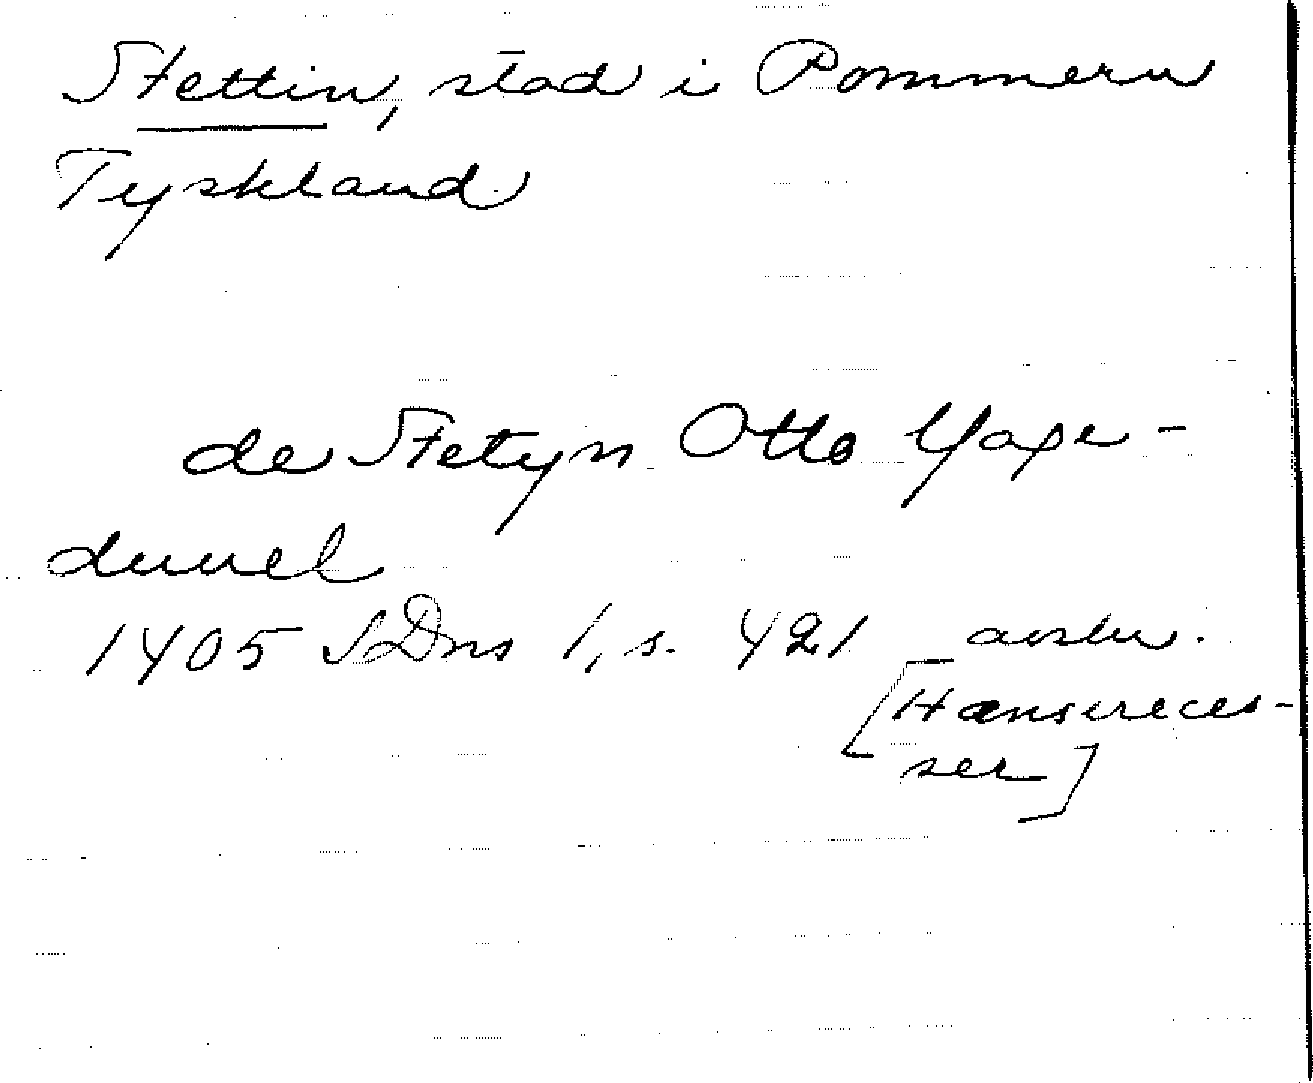 Stettin, stad i Pommern
Tyskland
de Stetyn Otto Yage-
duuel
1405 SDns 1, s. 421 avskr.
[Hansereces-
ser]